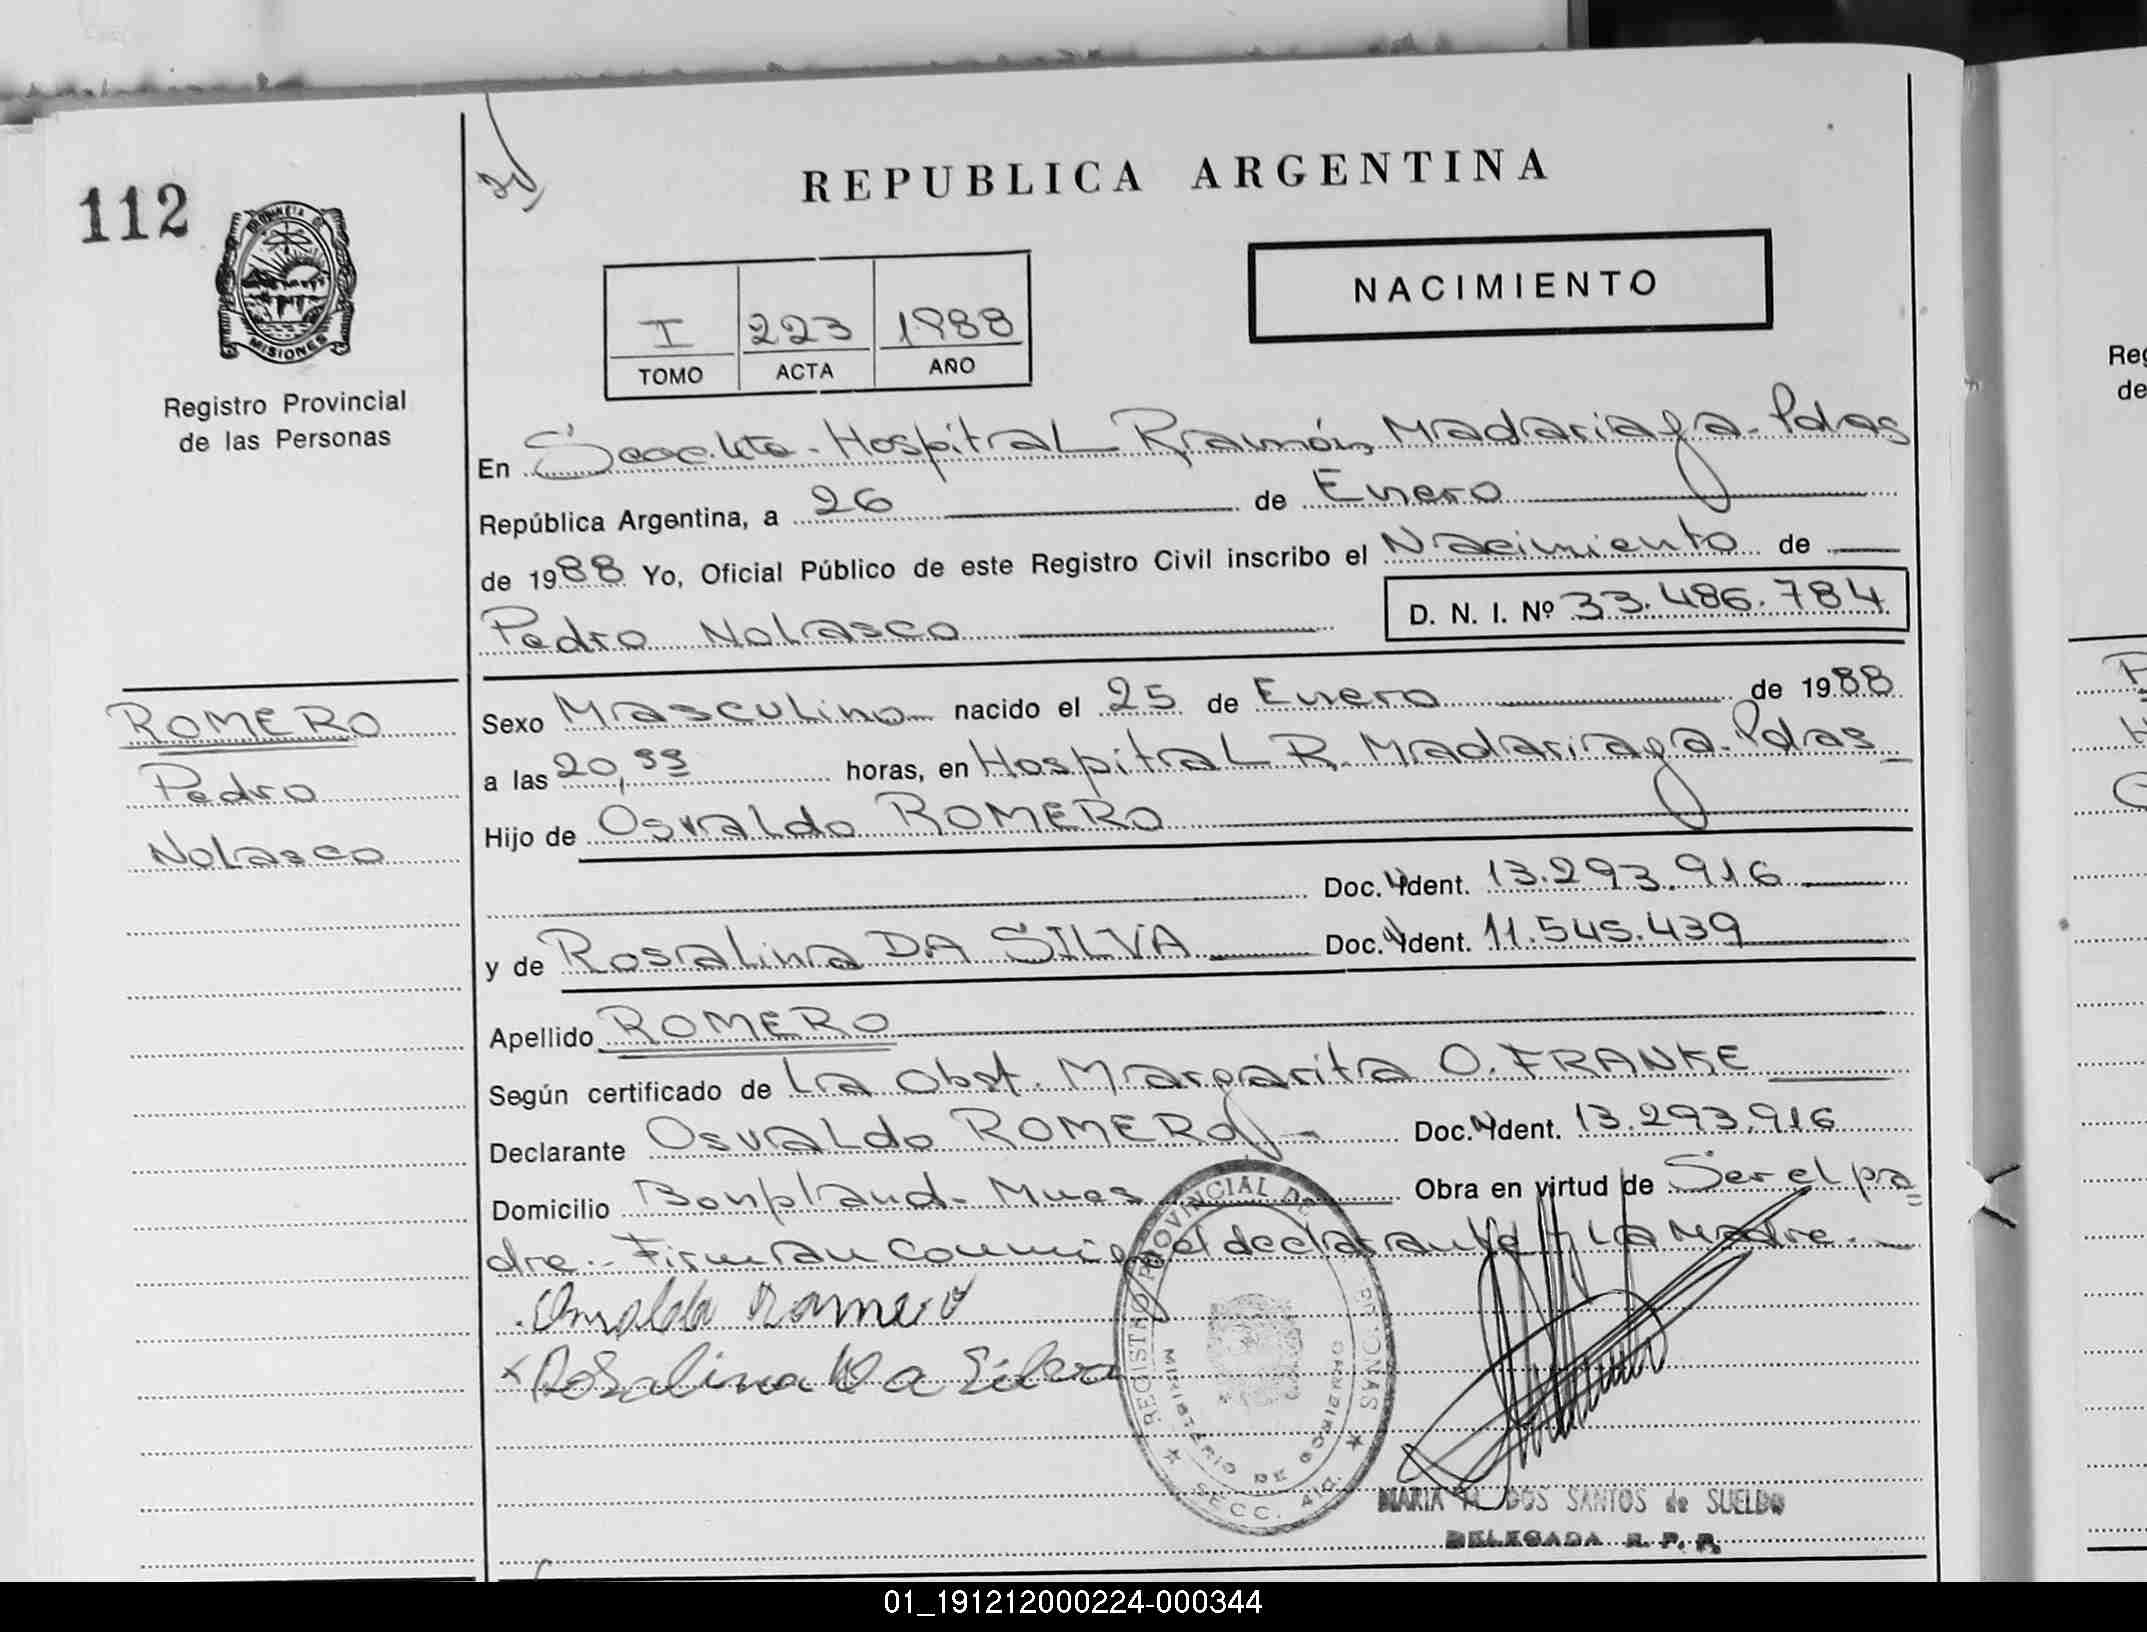 REPUBLICA ARGENTINA
112
PROVINCIA DE
MISIONES
Registro Provincial
de las Personas
NACIMIENTO
I 223 1988
TOMO ACTA AÑO
En Secc. 4ta - Hospital Ramón Madariaga - Pdas
República Argentina, a 26 de Enero
de 1988 Yo, Oficial Público de este Registro Civil inscribo el Nacimiento de
Pedro Nolasco D. N. I. Nº 33.486.784
ROMERO
Pedro
Nolasco
Sexo Masculino nacido el 25 de Enero de 1988
a las 20, horas, en Hospital R. Madariaga - Pdas
Hijo de Osvaldo ROMERO
Doc. Ident. 13.293.916
y de Rosalina DA SILVA Doc. Ident. 11.545.439
Apellido ROMERO
Según certificado de La Obst. Margarita O. FRANKE
Declarante Osvaldo ROMERO Doc. Ident. 13.293.916
Domicilio Bonpland - Mnes Obra en virtud de Ser el pa=
dre.- Firman conmigo el declarante y La Madre.-
Osvaldo Romero
x Rosalina Da Silva
REGISTRO PROVINCIAL DE PERSONAS
MINISTERIO DE GOBIERNO
SECC. 4ta.
MARIA DOS SANTOS de SUELDO
DELEGADA R. P. P.
Reg
de
01_191212000224-000344